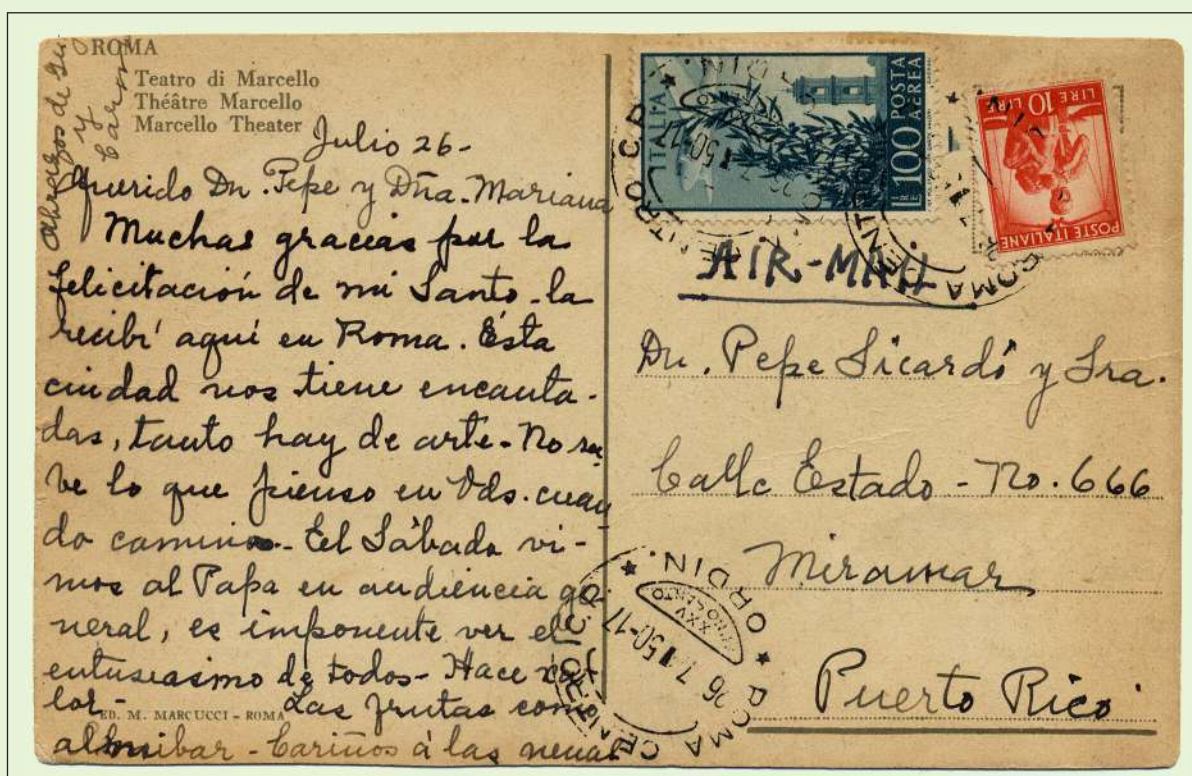 ROMA
Teatro di Marcello
Théâtre Marcello
Marcello Theater
Julio 26-
Querido Dn. Pepe y Dña. Mariana
Muchas gracias por la
felicitación de mi Santo - la
recibí aquí en Roma. Esta
ciudad nos tiene encanta-
das, tanto hay de arte - No sa-
be lo que pienso en Vds. cuan
do camino - El Sábado vi-
mos al Papa en audiencia ge-
neral, es imponente ver el
entusiasmo de todos - Hace ca-
lor - Las frutas como
almibar - Cariños á las nenas
Abrazos de
y
ED. M. MARCUCCI - ROMA
ITALIA
LIRE 100 POSTA AEREA
LIRE 10 LIRE
POSTE ITALIANE
AIR-MAIL
Dn. Pepe Sicardó y Sra.
Calle Estado - No. 666
Miramar
Puerto Rico
ROMA CENTRO
ORDIN.
26 7 50-17